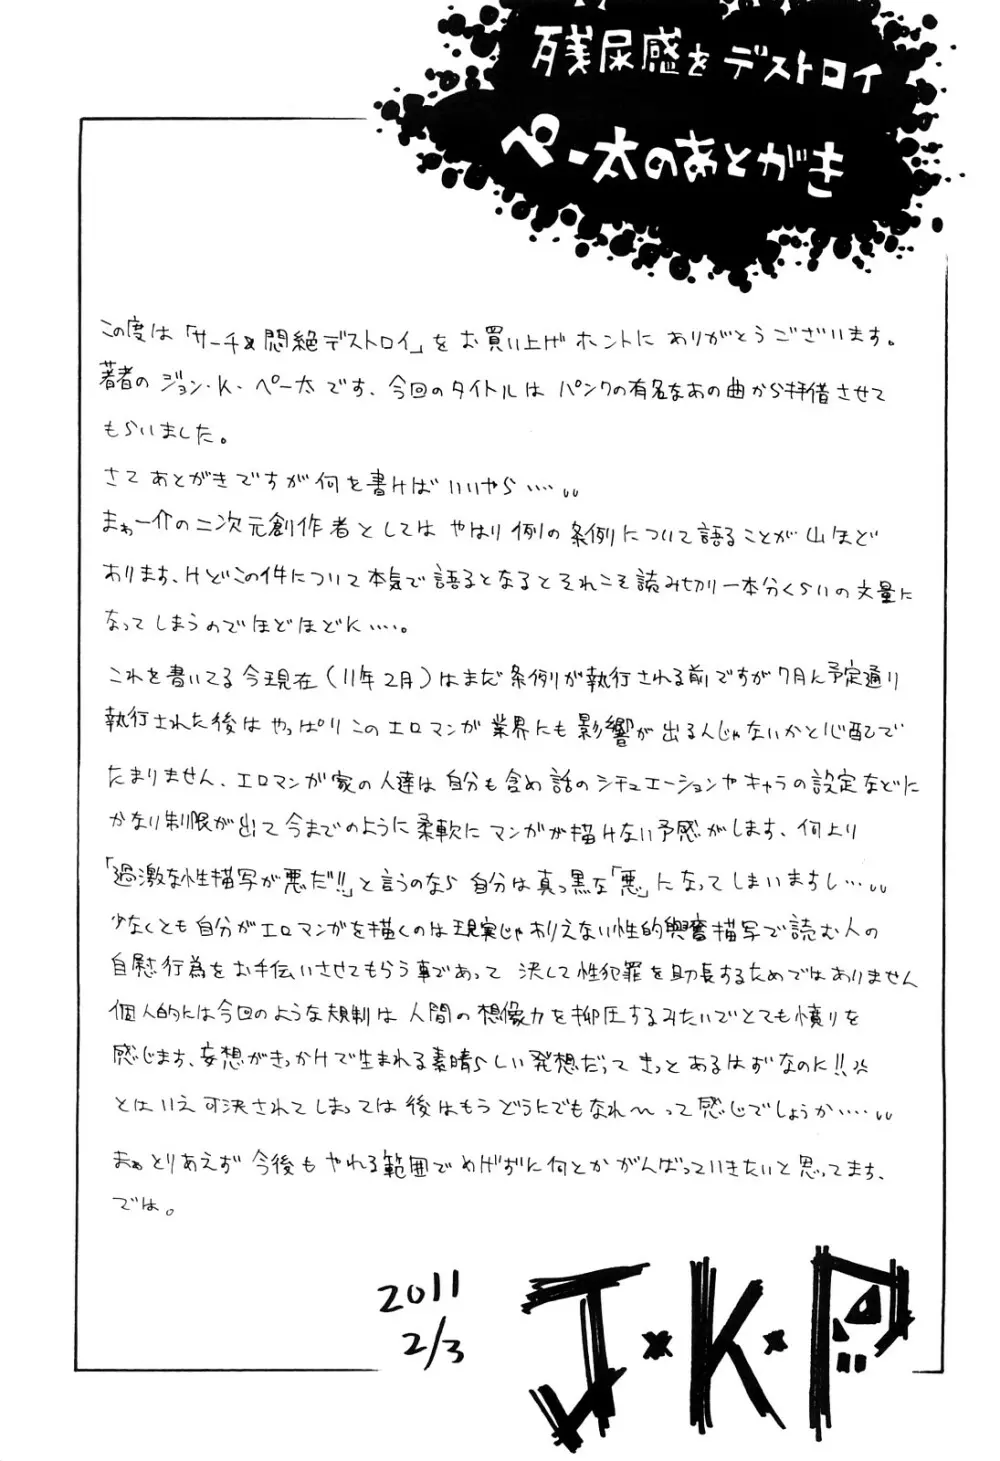 残尿感をデストロイ
ペー太のあとがき
この度は「サーチ&悶絶デストロイ」をお買い上げホントにありがとうございます。
著者のジョン・K・ペー太です、今回のタイトルはパンクの有名なあの曲から拝借させて
もらいました。
さてあとがきですが何を書けばいいやら‥‥
まぁ一介の二次元創作者としてはやはり例の条例について語ることが山ほど
あります、けどこの件について本気で語るとなるとそれこそ読み切り一本分くらいの文量に
なってしまうのでほどほどに‥‥。
これを書いてる今現在(11年2月)はまだ条例が執行される前ですが7月に予定通り
執行された後はやっぱりこのエロマンガ業界にも影響が出る人じゃないかと心配で
たまりません、エロマンガ家の人達は自分も含め話のシチュエーションやキャラの設定などに
かなり制限が出て今までのように柔軟にマンガが描けない予感がします、何より
「過激な性描写が悪だ!!」と言うのなら自分は真っ黒な「悪」になってしまいますし‥‥
少なくとも自分がエロマンガを描くのは現実じゃありえない性的興奮描写で読む人の
自慰行為をお手伝いさせてもらう事であって決して性犯罪を助長するためではありません
個人的には今回のような規制は人間の想像力を抑圧するみたいでとても憤りを
感じます、妄想がきっかけで生まれる素晴らしい発想だってきっとあるはずなのに!!
とはいえ可決されてしまっては後はもうどうにでもなれ〜って感じでしょうか‥‥
まぁとりあえず今後もやれる範囲でめげずに何とかがんばっていきたいと思ってます、
では。
2011
2/3
J・K・P